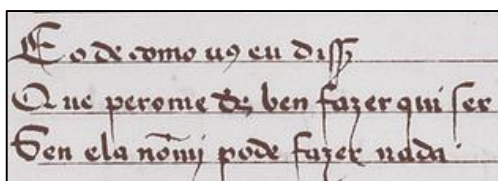 E o de como uꝯ eu diſſ
Que perome deᷤ ben fazer qui ſer
Sen ela nōmj pode fazer nada